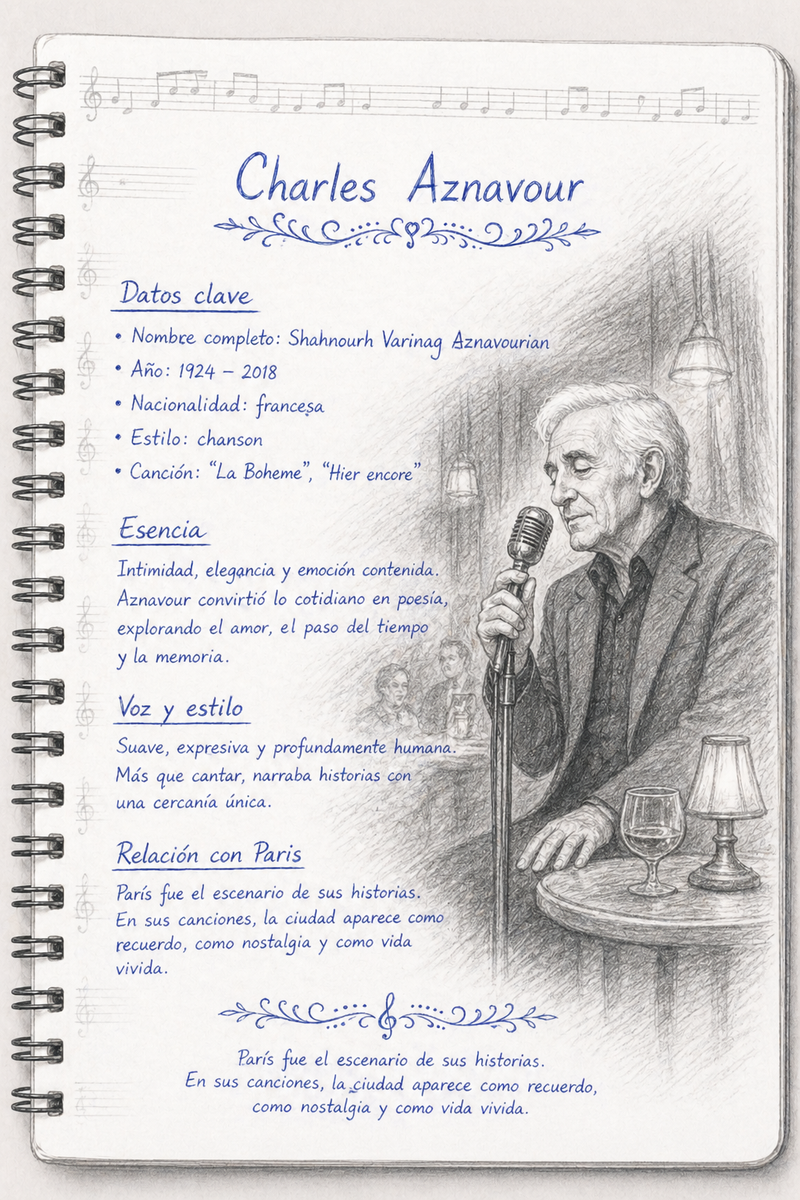 Charles Aznavour
Datos clave
• Nombre completo: Shahnourh Varinag Aznavourian
• Año: 1924 – 2018
• Nacionalidad: francesa
• Estilo: chanson
• Canción: “La Boheme”, “Hier encore”
Esencia
Intimidad, elegancia y emoción contenida.
Aznavour convirtió lo cotidiano en poesia,
explorando el amor, el paso del tiempo
y la memoria.
Voz y estilo
Suave, expresiva y profundamente humana.
Más que cantar, narraba historias con
una cercanía única.
Relación con Paris
París fue el escenario de sus historias.
En sus canciones, la ciudad aparece como
recuerdo, como nostalgia y como vida
vivida.
París fue el escenario de sus historias.
En sus canciones, la ciudad aparece como recuerdo,
como nostalgia y como vida vivida.